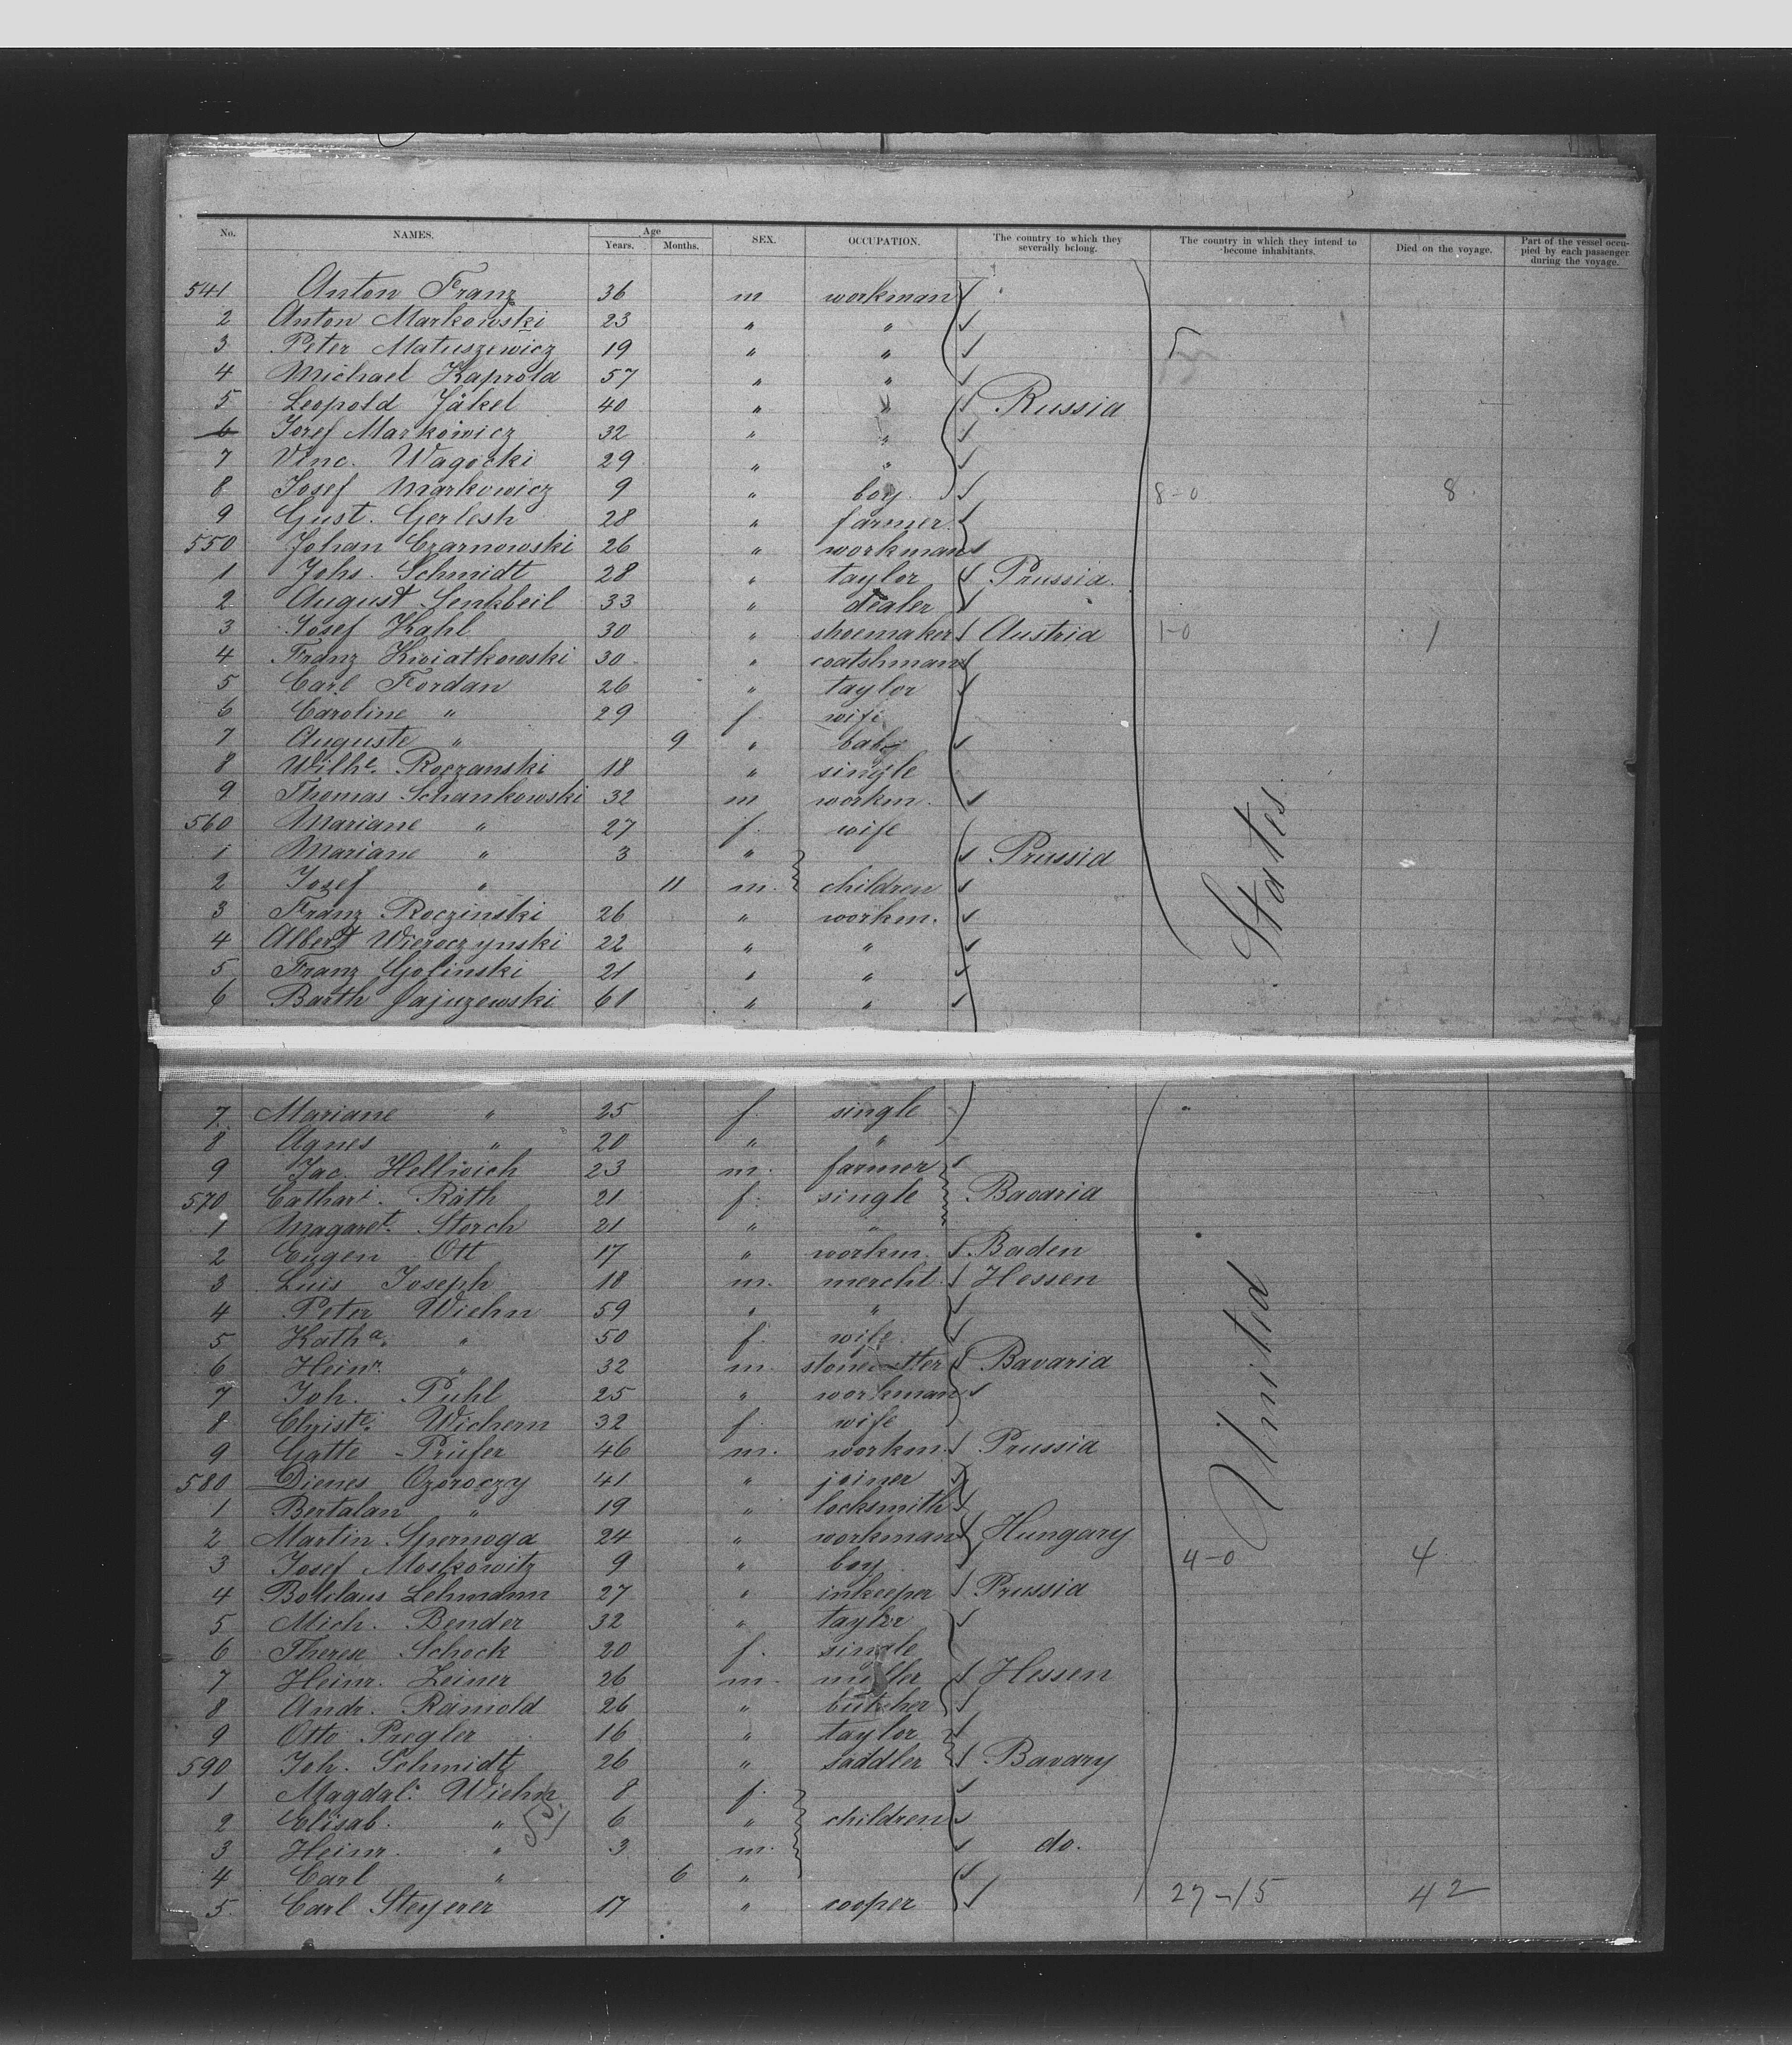 No. NAMES. Age Years. Months. SEX. OCCUPATION. The country to which they severally belong. The country in which they intend to become inhabitants. Died on the voyage. Part of the vessel occupied by each passenger during the voyage.
541 Anton Franz 36 m workman
2 Anton Markowski 23 " "
3 Peter Matuszewicz 19 " "
4 Michael Kaprold 57 " "
5 Leopold Jäkel 40 " " Russia
6 Josef Markowicz 32 " "
7 Vinc. Wagocki 29 " "
8 Josef Markowicz 9 " boy 8-0 8
9 Gust. Gerlesh 28 " farmer
550 Johan Czarnowski 26 " workman
1 Johs. Schmidt 28 " taylor Prussia.
2 August Senkbeil 33 " dealer
3 Josef Kahl 30 " shoemaker Austria 1-0 1
4 Franz Kwiatkowski 30 " coatshman
5 Carl Fordan 26 " taylor
6 Caroline " 29 f. wife
7 Auguste " 9 " baby
8 Wilhe. Roczanski 18 " single
9 Thomas Schankowski 32 m workm.
560 Mariane " 27 f. wife
1 Mariane " 3 " Prussia
2 Josef " 11 m. children
3 Franz Roczinski 26 " workm.
4 Albert Wieroczynski 22 " "
5 Franz Golinski 21 " "
6 Barth 61 " "
States
7 Mariane " 25 f. single
8 Agnes " 20 " "
9 Jac. Hellwich 23 m. farmer
570 Cathari. Räth 21 f. single Bavaria
1 Magaret. Storch 21 " "
2 Eugen Ott 17 " workm. Baden
3 Luis Joseph 18 m. mercht. Hessen
4 Peter Wiehn 59 " "
5 Katha. " 50 f. wife
6 Heinr. " 32 m. stonecutter Bavaria
7 Joh. Puhl 25 " workman
8 Christe. Wichern 32 f. wife
9 Gatte Prüfer 46 m. workm. Prussia
580 Dienes Ozoroczy 41 " joiner
1 Bertalan " 19 " locksmith
2 Martin Spernoga 24 " workman Hungary
3 Josef Moskowitz 9 " boy 4-0 4
4 Bolilaus Lehmann 27 " inkeeper Prussia
5 Mich. Bender 32 " taylor
6 Therese Schock 20 f. single
7 Heinr. Leiner 26 m. miller Hessen
8 Andr. Reinold 26 " butcher
9 Otto Pregler 16 " taylor
590 Joh. Schmidt 26 " saddler Bavary
1 Magdal. Wiehn 8 f.
2 Elisab. " 6 " children
3 Heinr. " 3 m. do.
4 Carl " 6 "
5 Carl Steyerer 17 " cooper 27-15 42
United